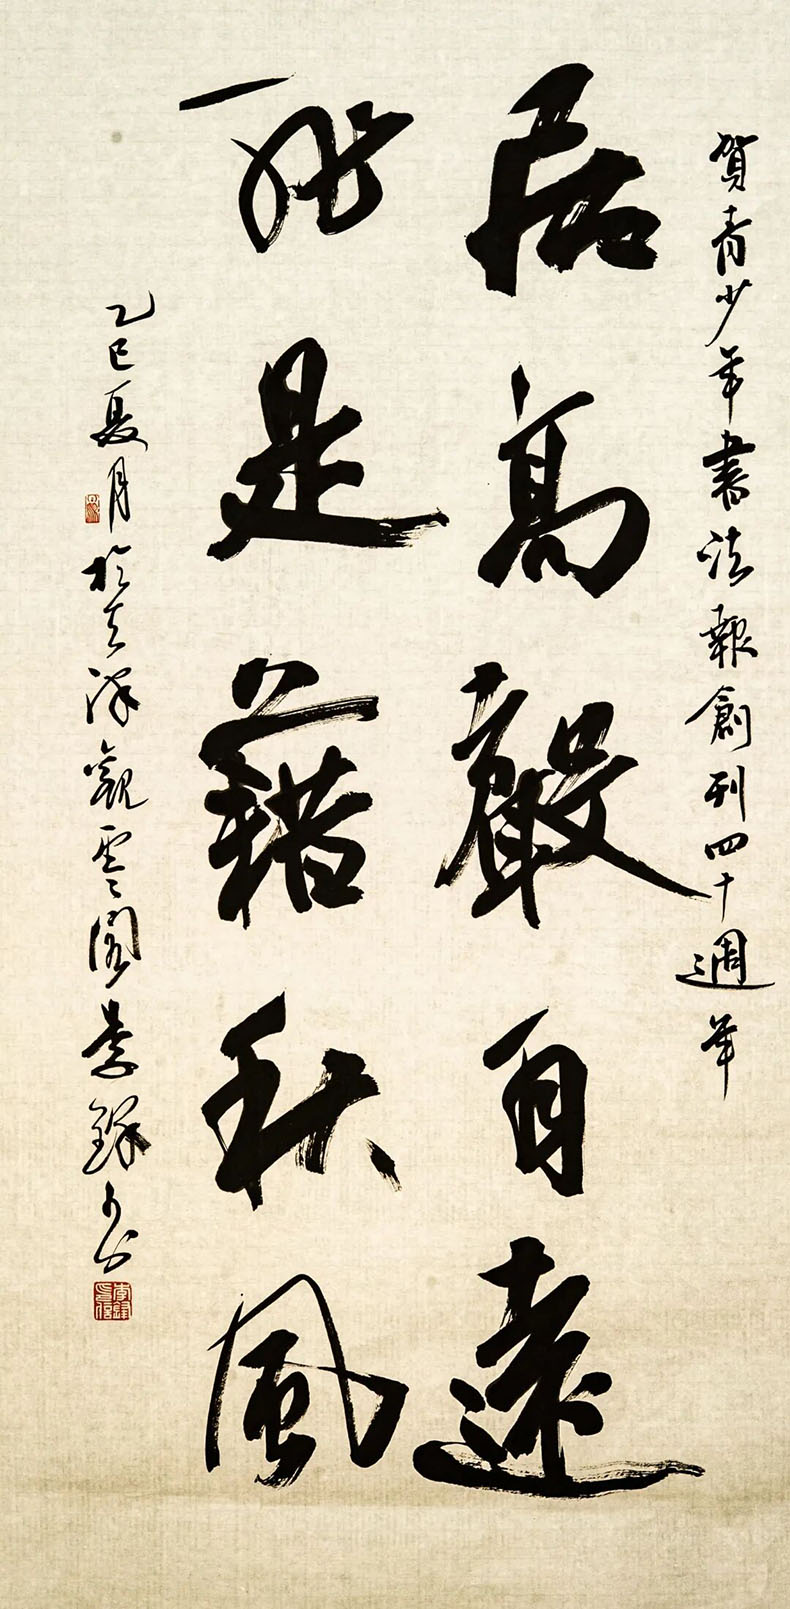 賀青少年書法報創刊四十週年
居高聲自遠
非是藉秋風
乙巳夏月於天澤觀雲閣李鋒書